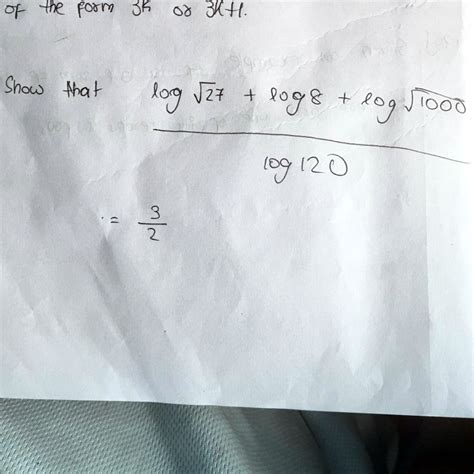 of the form 3k or 3k+1.
Show that log √27 + log 8 + log √1000
log 120
= 3/2